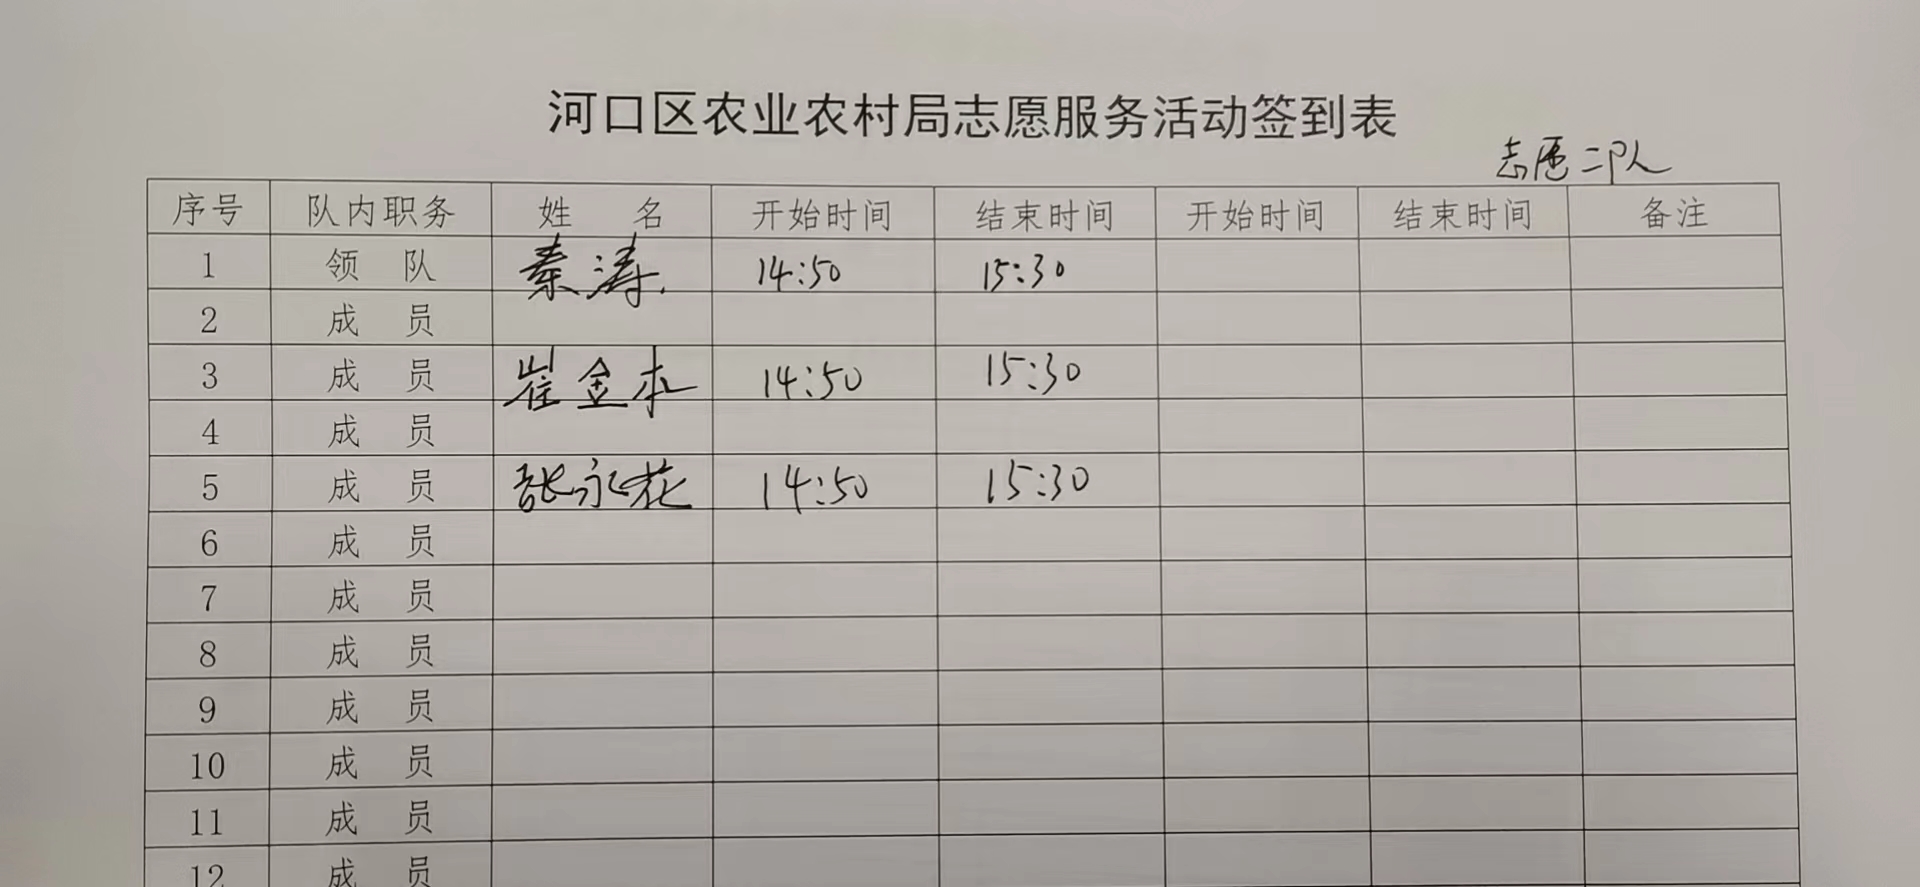 河口区农业农村局志愿服务活动签到表
志愿二队
序号 队内职务 姓 名 开始时间 结束时间 开始时间 结束时间 备注
1 领 队 秦涛 14:50 15:30
2 成 员
3 成 员 崔金本 14:50 15:30
4 成 员
5 成 员 张永花 14:50 15:30
6 成 员
7 成 员
8 成 员
9 成 员
10 成 员
11 成 员
12 成 员